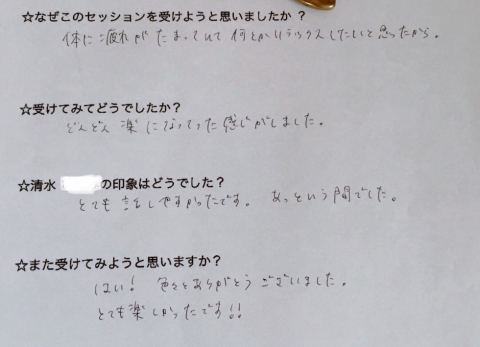 ☆なぜこのセッションを受けようと思いましたか ?
体に疲れがたまっていて何とかリラックスしたいと思ったから。
☆受けてみてどうでしたか?
どんどん楽になってった感じがしました。
☆清水 の印象はどうでした?
とても話しやすかったです。 あっという間でした。
☆また受けてみようと思いますか?
はい! 色々とありがとうございました。
とても楽しかったです!!